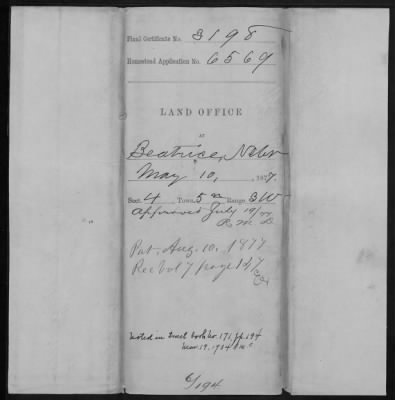 Final Certificate No. 3198
Homestead Application No. 6569
LAND OFFICE
AT
Beatrice, Nebr
May 10, 1877.
Sect. 4 Town. 5 n Range 3 W
Approved July 19/77
Pat. Aug. 10. 1877
Rec Vol 7 page 147
Noted in Tract book Nr. 171, p. 194
Mar. 19. 1934
6/194